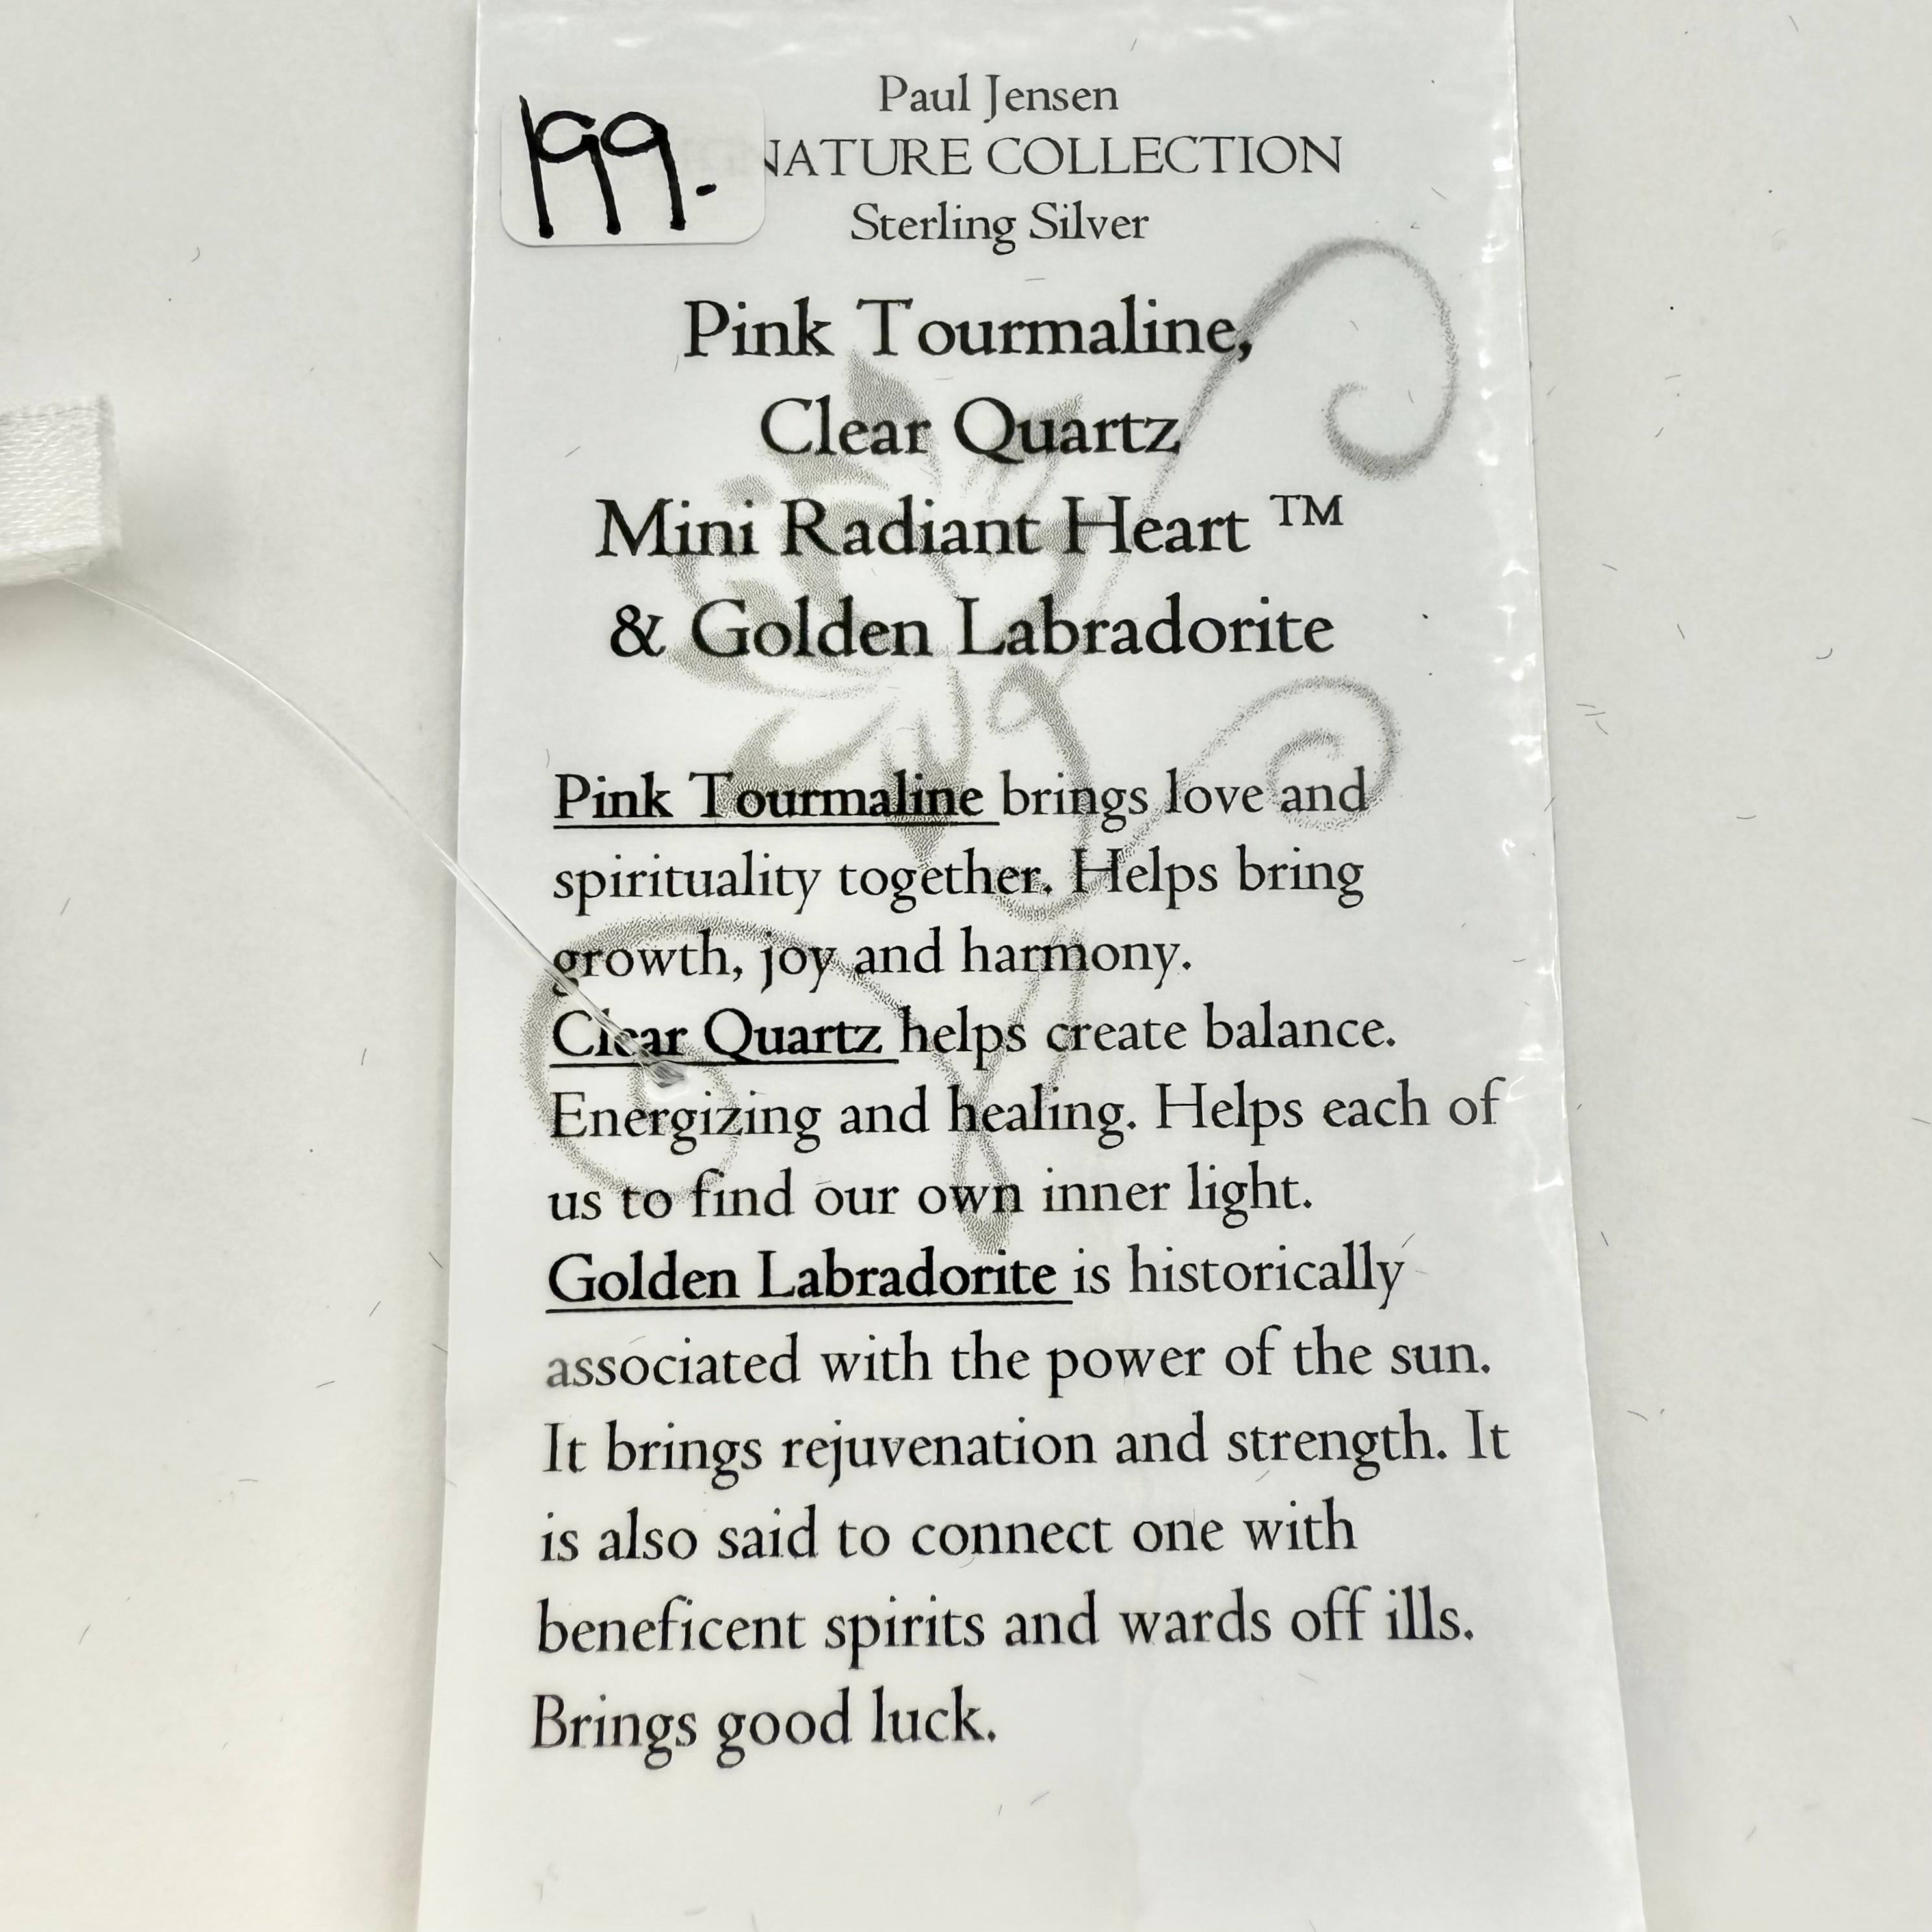 Paul Jensen
199.
NATURE COLLECTION
Sterling Silver
Pink Tourmaline,
Clear Quartz
Mini Radiant Heart ™
& Golden Labradorite
Pink Tourmaline brings love and
spirituality together. Helps bring
growth, joy and harmony.
Clear Quartz helps create balance.
Energizing and healing. Helps each of
us to find our own inner light.
Golden Labradorite is historically
associated with the power of the sun.
It brings rejuvenation and strength. It
is also said to connect one with
beneficent spirits and wards off ills.
Brings good luck.